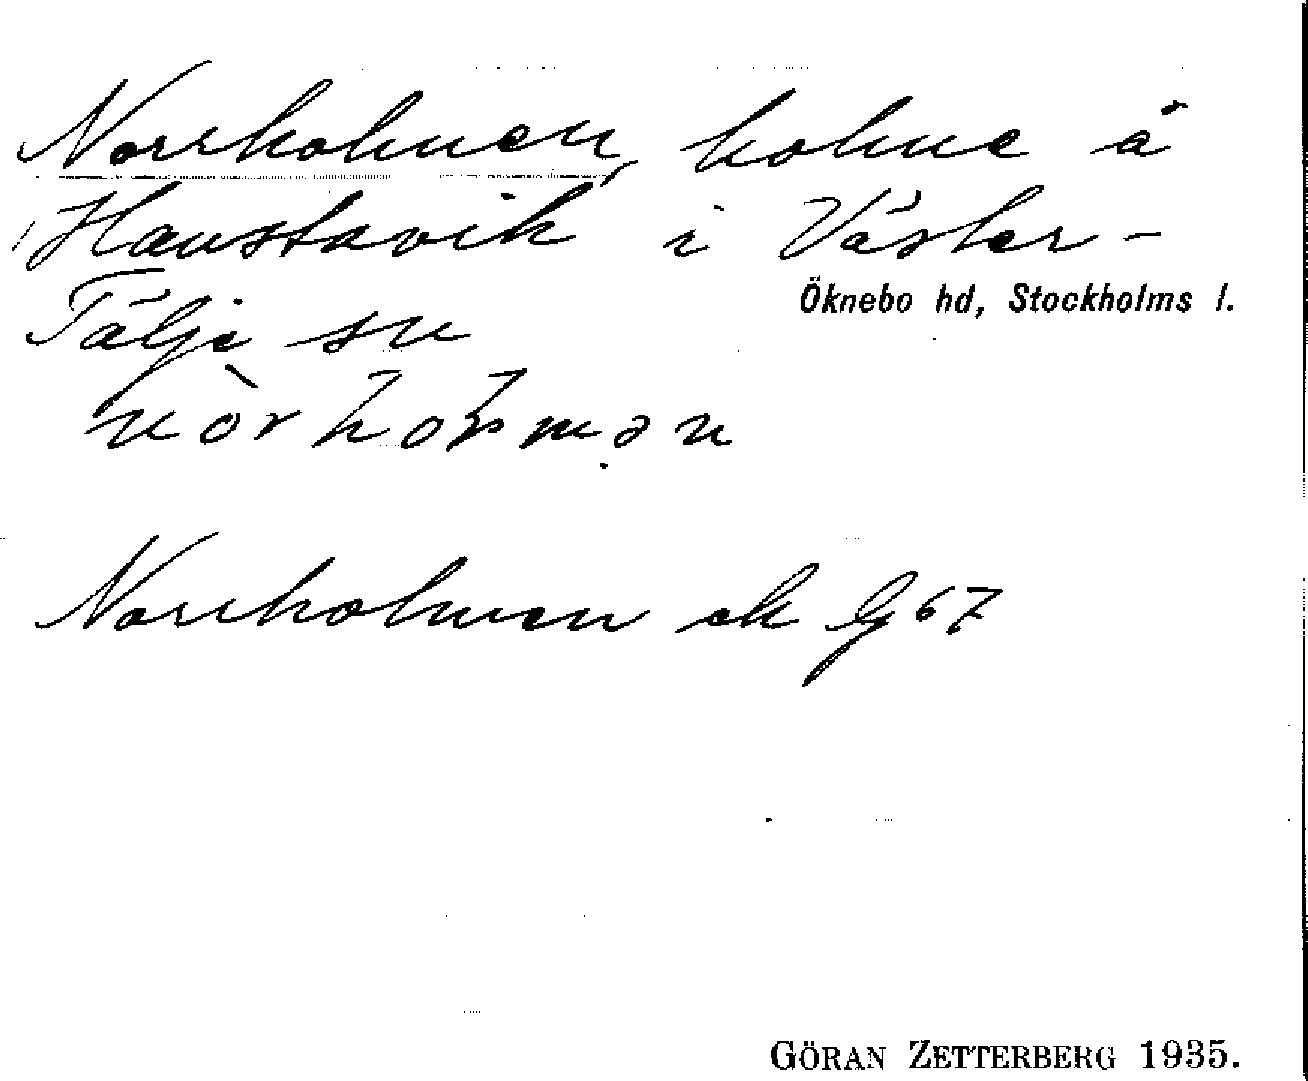 Norrholmen, holme å
Haustavik i Väster-
Öknebo hd, Stockholms l.
Tälje sn
nòrhoɫmən
Norrholmen ek G 67
GÖRAN ZETTERBERG 1935.